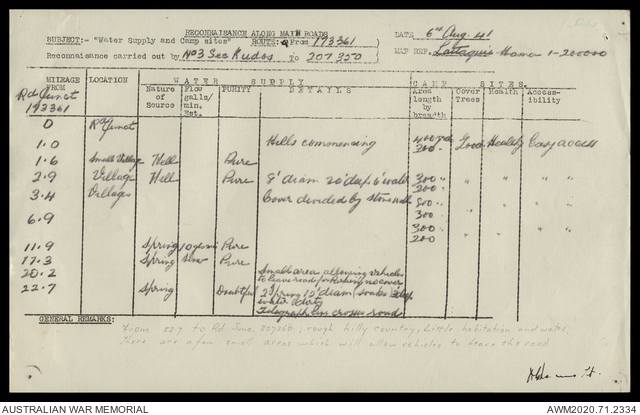 RECONNAISANCE ALONG MAIN ROADS
SUBJECT:- "Water Supply and Camp sites" ROUTE: From 193361
DATE 6th Aug. 41
Reconnaisance carried out by No3 Sec Kudos to 207350
MAP REF. Lattaquie Hama 1-200000
MILEAGE FROM Rd Junct 193361 LOCATION WATER SUPPLY CAMP SITES.
Nature of Source Flow galls/min. Est. PURITY DETAILS Area length by breadth Cover Trees Health Accessibility
0 Rd Junct
1.0 Hills commencing 400 yds 200 Good Healthy Easy access
1.6 Small Village Well Pure
2.9 Village Well Pure 8' diam 20' deep 6' water 300 200 " " "
3.4 Villages Cover divided by stone walls 800 300 " " "
6.9 300 200 " " "
11.9 Spring Pure
17.3 Spring Slow Pure
20.2 Small area allowing vehicles to leave road for parking no cover
22.7 Spring Doubtful 2 Spring 12' diam
Telegraph line crosses road
GENERAL REMARKS:
From 22.7 to Rd. Junc. 207350; rough hilly country, little habitation and water,
there are a few small areas which will allow vehicles to leave the road
Lt.
AUSTRALIAN WAR MEMORIAL
AWM2020.71.2334